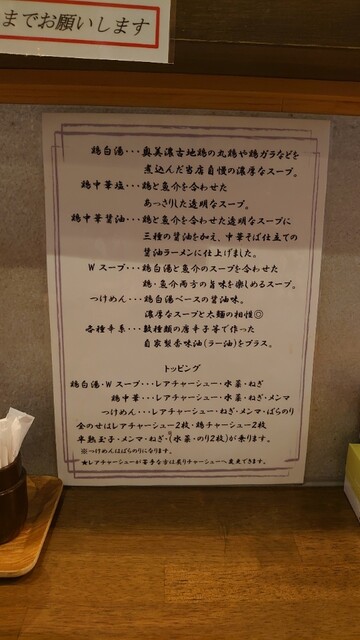 までお願いします
鶏白湯・・・奥美濃古地鶏の丸鶏や鶏ガラなどを
煮込んだ当店自慢の濃厚なスープ。
鶏中華塩・・・鶏と魚介を合わせた
あっさりした透明なスープ。
鶏中華醤油・・・鶏と魚介を合わせた透明なスープに
三種の醤油を加え、中華そば仕立ての
醤油ラーメンに仕上げました。
Wスープ・・・鶏白湯と魚介のスープを合わせた
鶏・魚介両方の旨味を楽しめるスープ。
つけめん・・・鶏白湯ベースの醤油味。
濃厚なスープと太麺の相性◎
各種辛系・・・数種類の唐辛子等で作った
自家製香味油(ラー油)をプラス。
トッピング
鶏白湯・Wスープ・・・レアチャーシュー・水菜・ねぎ
鶏中華・・・レアチャーシュー・水菜・ねぎ・メンマ
つけめん・・・レアチャーシュー・ねぎ・メンマ・ばらのり
全のせはレアチャーシュー2枚・鶏チャーシュー2枚
半熟玉子・メンマ・ねぎ・(水菜・のり2枚)が乗ります。
※つけめんはばらのりになります。
★レアチャーシューが苦手な方は炙りチャーシューへ変更できます。